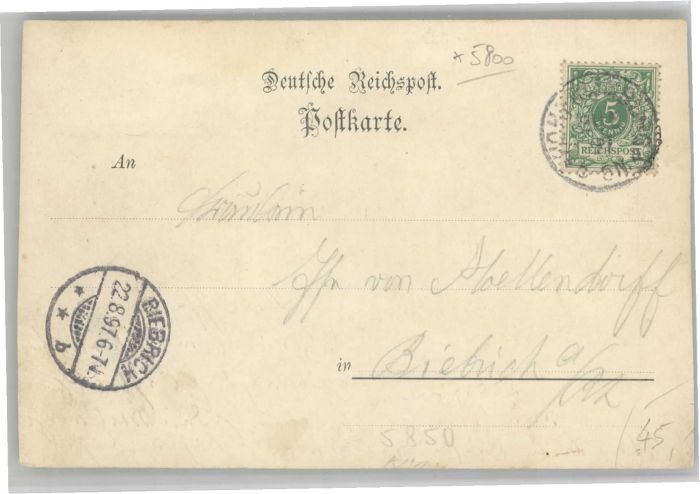 * 5800
Deutsche Reichspost.
Postkarte.
5
REICHSPOST
An
Fräulein
von Moellendorff
BIEBRICH
22.8.97. 6-7N.
* * b
in Biebrich a/Rh
5850
45,